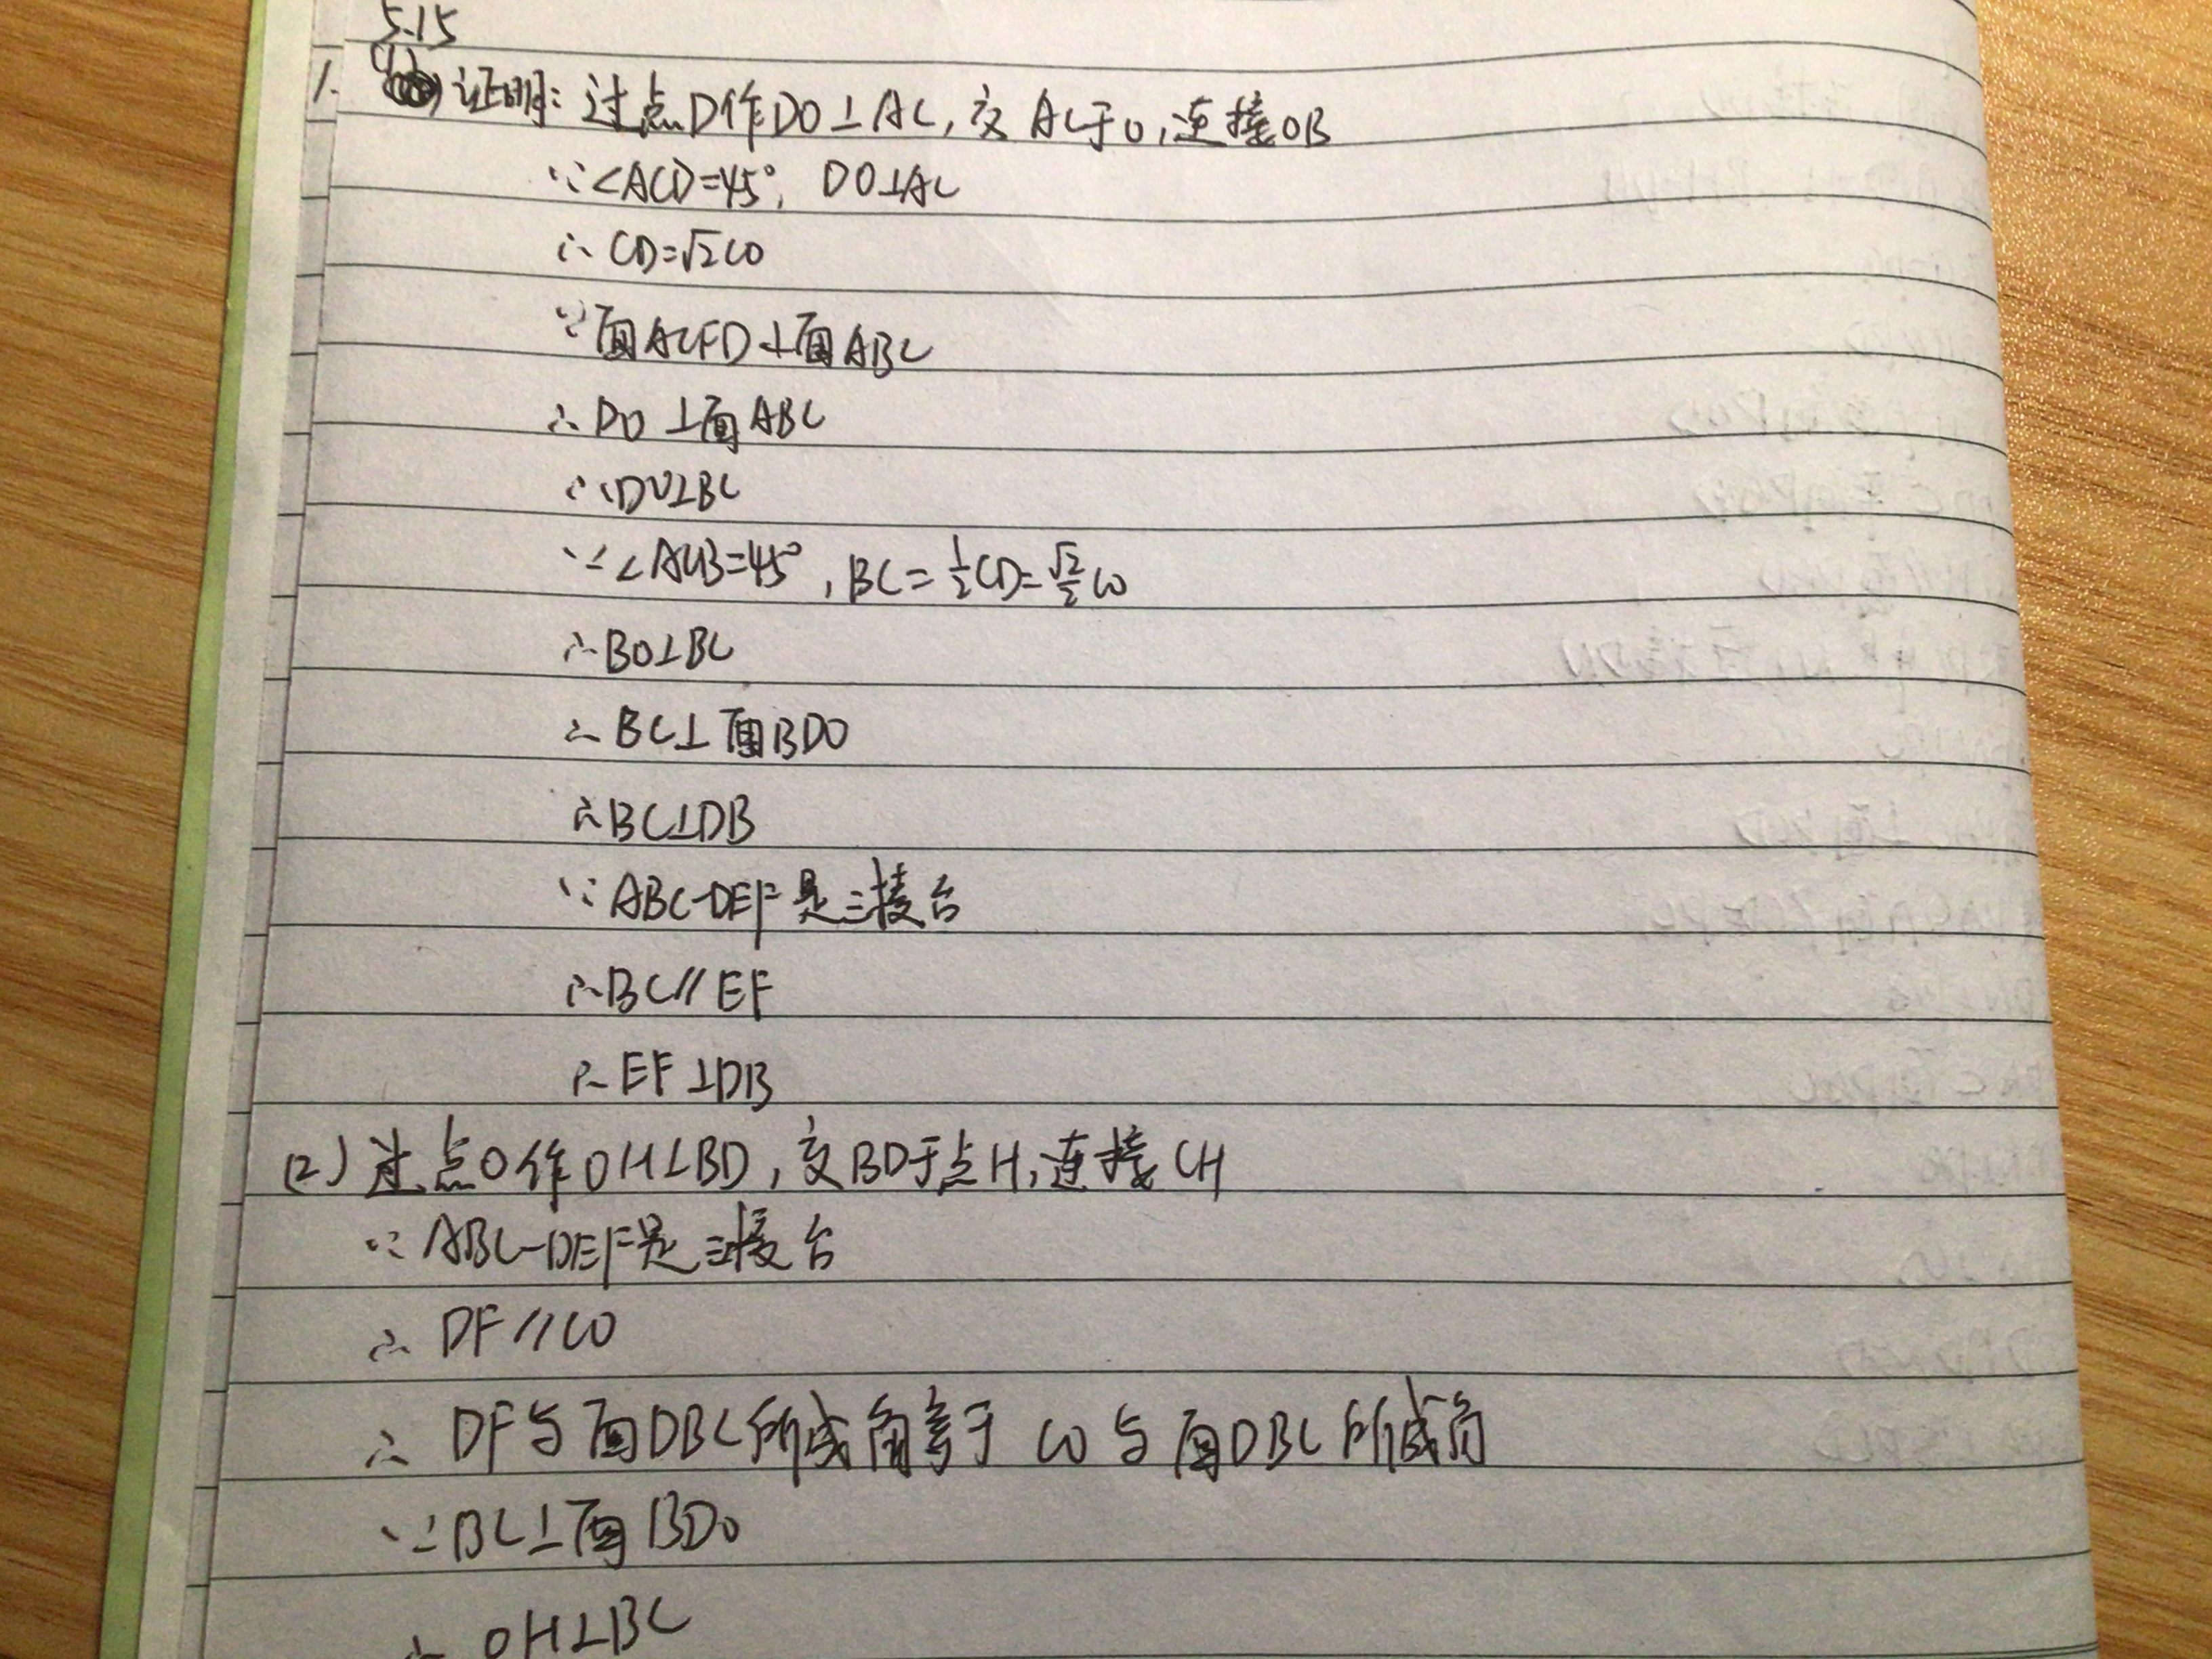 5.15
1. (1) 证明: 过点D作DO⊥AC, 交AC于O, 连接OB
∵∠ACD=45°, DO⊥AC
∴ CD=√2CO
∵面ACFD⊥面ABC
∴ DO⊥面ABC
∴DO⊥BC
∵∠ACB=45°, BC=1/2CD=√2/2CO
∴BO⊥BC
∴ BC⊥面BDO
∴BC⊥DB
∵ ABC-DEF是三棱台
∴BC∥EF
∴EF⊥DB
(2) 过点O作OH⊥BD, 交BD于点H, 连接CH
∵ ABC-DEF是三棱台
∴ DF∥CO
∴ DF与面DBC所成角等于CO与面DBC所成角
∵BC⊥面BDO
∴ OH⊥BC